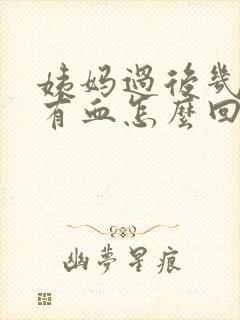 姨妈過後幾
有血怎麼回
幽夢星痕